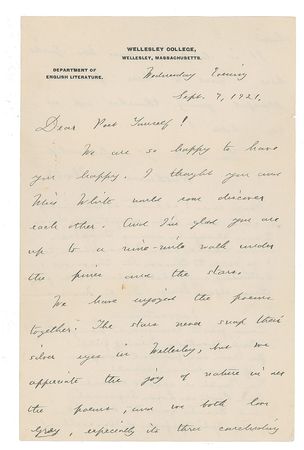 WELLESLEY COLLEGE,
WELLESLEY, MASSACHUSETTS.
DEPARTMENT OF
ENGLISH LITERATURE.
Wednesday Evening
Sept. 7, 1921.
Dear Poet Yourself!
We are so happy to have
you happy. I thought you and
Miss White would soon discover
each other. And I'm glad you are
up to a nine-mile walk under
the pines and the stars.
We have enjoyed the poems
together. The stars never snap their
silver eyes in Wellesley, but we
appreciate the joy of nature in
the poems, and we both love
Gray, especially its three concluding